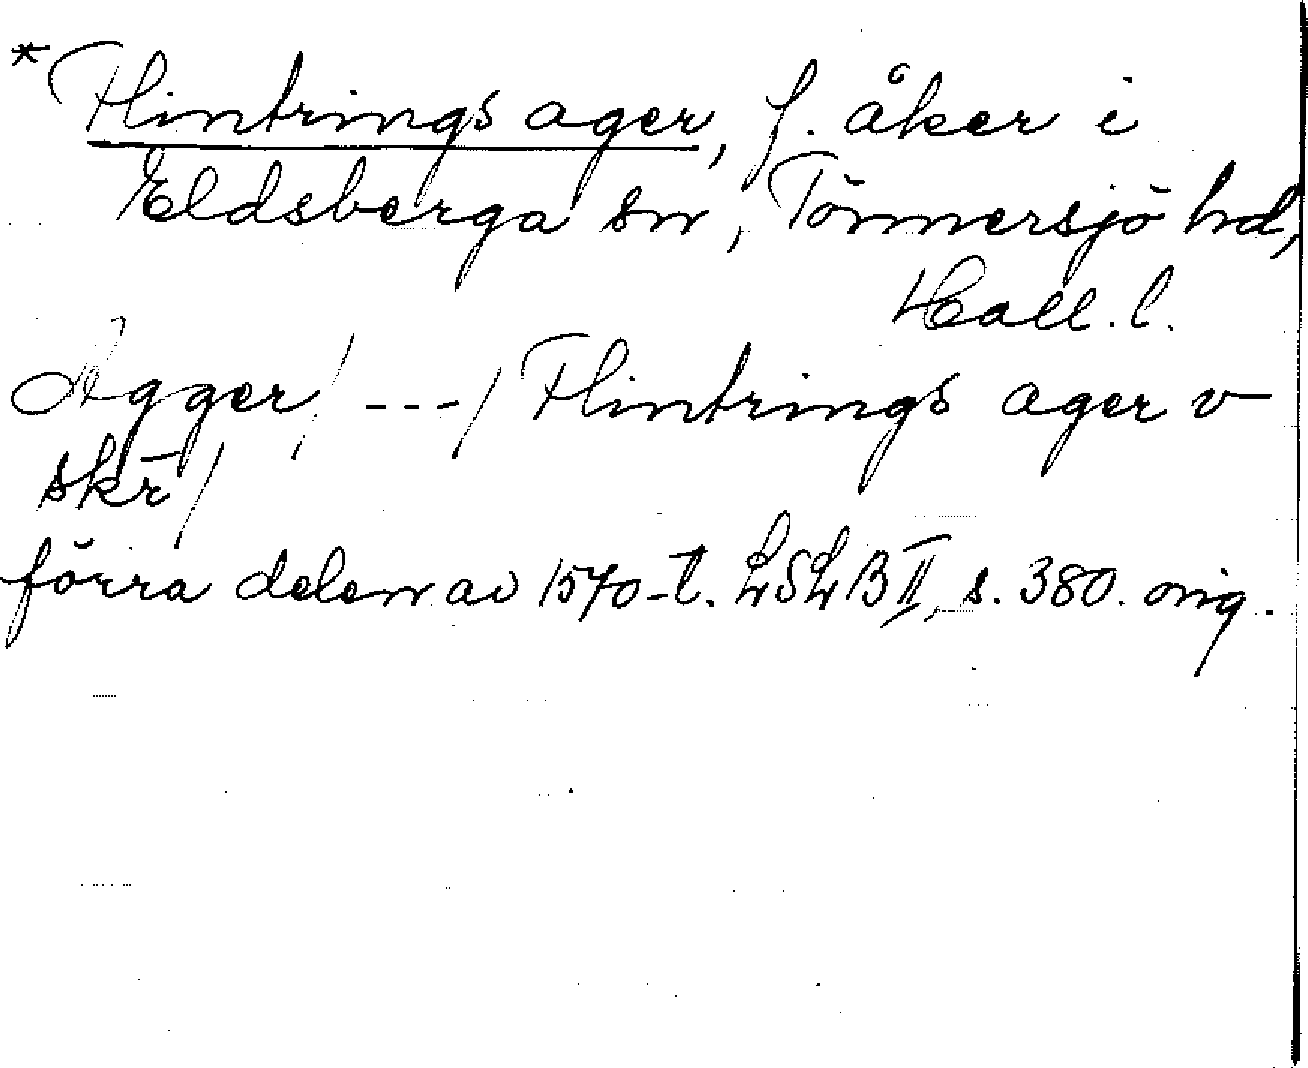 *Flintrings ager, f. åker i
Eldsberga sn, Tönnersjö hd,
Hall. l.
Agger / --- / Flintrings ager v
skr /
förra delen av 1570-t. LSLB II, s. 380. orig.